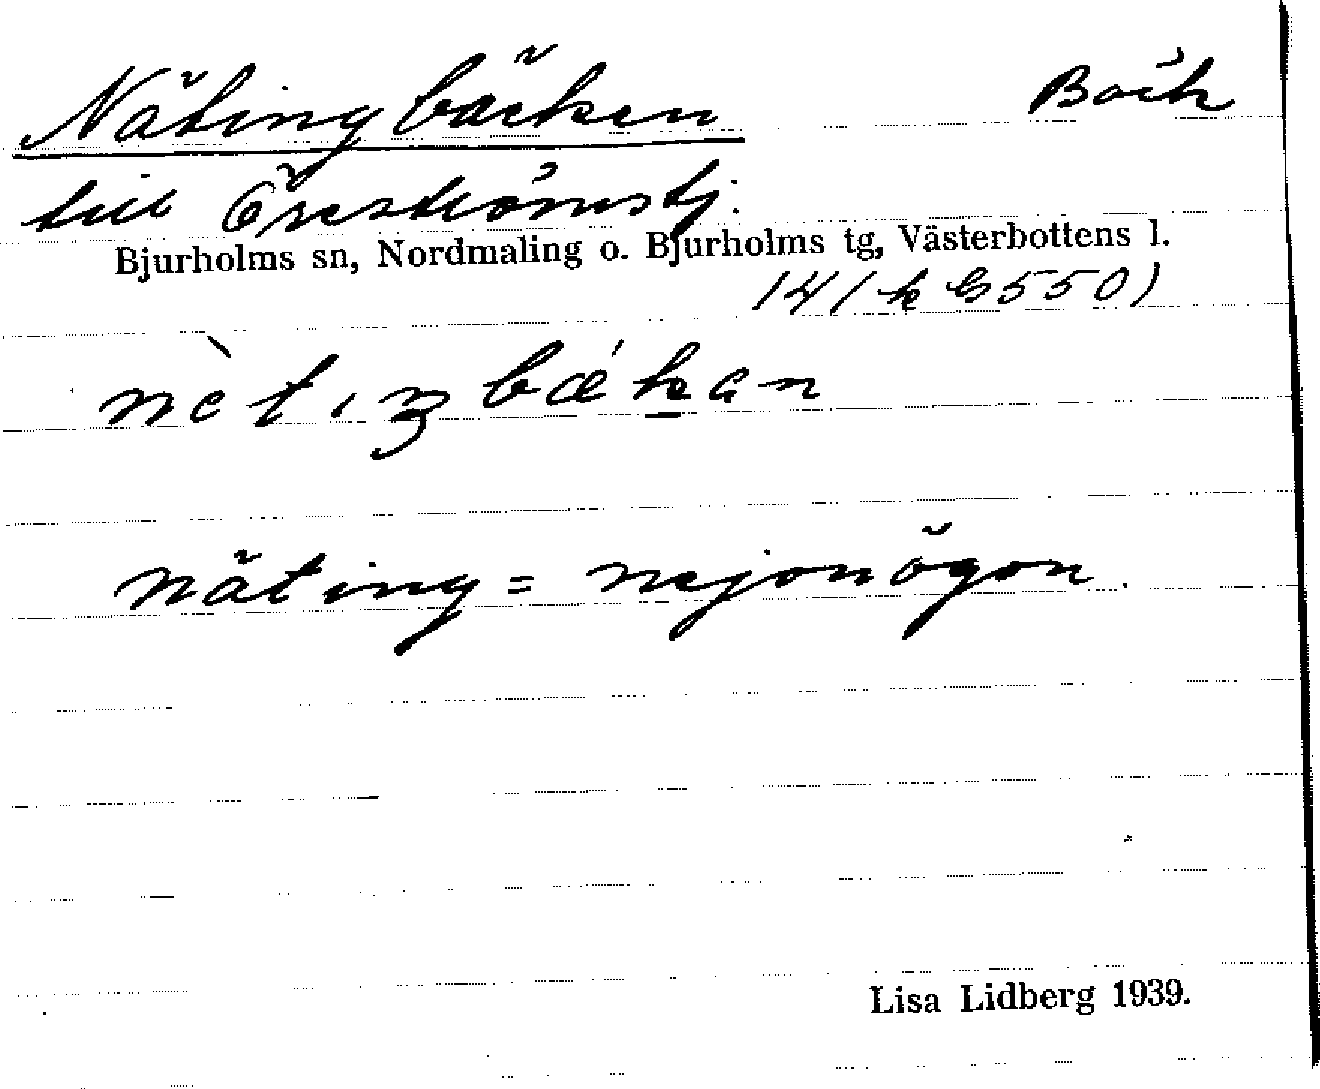 Nätingbäcken Bäck
till Örströmstj.
Bjurholms sn, Nordmaling o. Bjurholms tg, Västerbottens l.
nèt.ıŋbǽkan
näting = nejonögon.
Lisa Lidberg 1939.